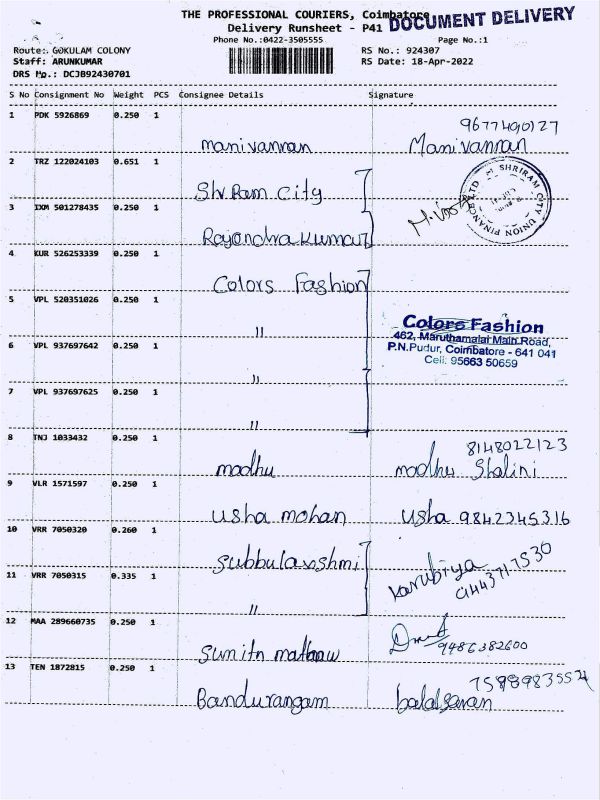 THE PROFESSIONAL COURIERS, Coimbatore
DOCUMENT DELIVERY
Delivery Runsheet - P41
Phone No.:0422-3505555 Page No.:1
Route: GOKULAM COLONY RS No.: 924307
Staff: ARUNKUMAR RS Date: 18-Apr-2022
DRS No.: DCJB92430701
S No Consignment No Weight PCS Consignee Details Signature
1 PDK 5926869 0.250 1
manivannan Manivannan
2 TRZ 122024103 0.651 1
Shri Ram City
SHRIRAM CITY UNION FINANCE LTD
3 IXM 501278435 0.250 1
Rajendra Kumar
4 KUR 526253339 0.250 1
Colors Fashion
5 VPL 520351026 0.250 1
"
Colors Fashion
462, Maruthamalai Main Road,
P.N.Pudur, Coimbatore - 641 041
Cell: 95663 50659
6 VPL 937697642 0.250 1
"
7 VPL 937697625 0.250 1
"
8 TNJ 1033432 0.250 1 8148022123
madhu madhu Shalini
9 VLR 1571597 0.250 1
usha mohan usha 9842345316
10 VRR 7050320 0.260 1
Subbulaxshmi
11 VRR 7050315 0.335 1
"
12 MAA 289660735 0.250 1
9486382600
13 TEN 1872815 0.250 1
Bandurangam